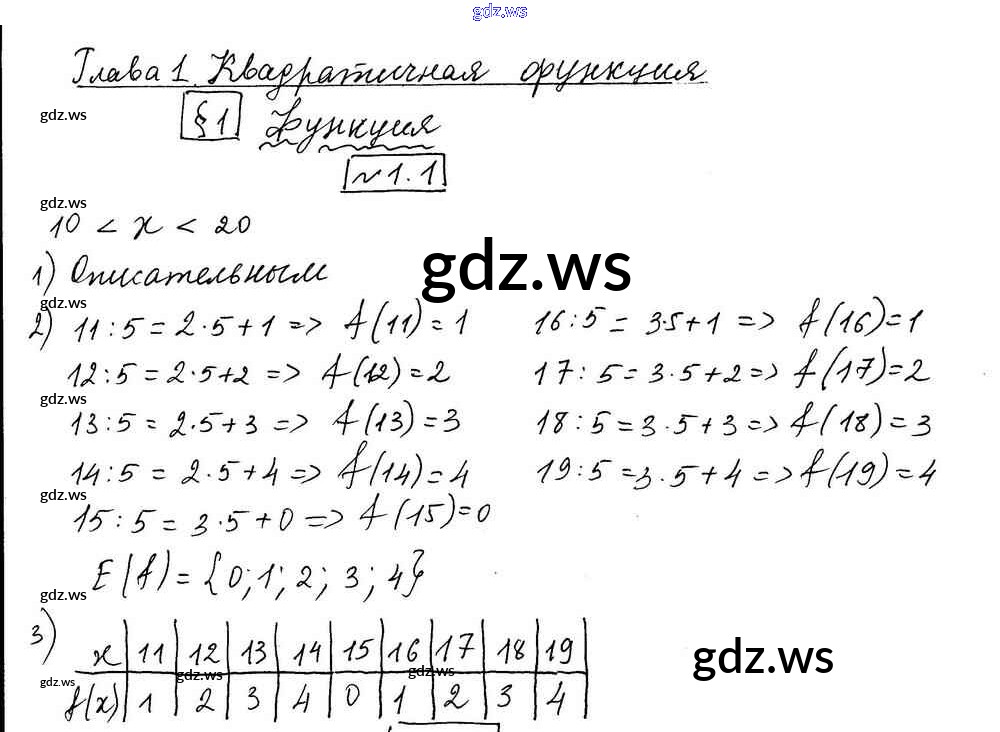 gdz.ws
Глава 1. Квадратичная функция
gdz.ws
§1 Функция
№1.1
gdz.ws
10 < x < 20
gdz.ws
1) Описательным
gdz.ws
2) 11:5 = 2·5+1 => f(11)=1 16:5 = 3·5+1 => f(16)=1
12:5 = 2·5+2 => f(12)=2 17:5 = 3·5+2 => f(17)=2
gdz.ws
13:5 = 2·5+3 => f(13)=3 18:5 = 3·5+3 => f(18)=3
14:5 = 2·5+4 => f(14)=4 19:5 = 3·5+4 => f(19)=4
gdz.ws
15:5 = 3·5+0 => f(15)=0
E(f) = {0; 1; 2; 3; 4}
gdz.ws
3) x 11 12 13 14 15 16 17 18 19
gdz.ws gdz.ws gdz.ws gdz.ws
f(x) 1 2 3 4 0 1 2 3 4